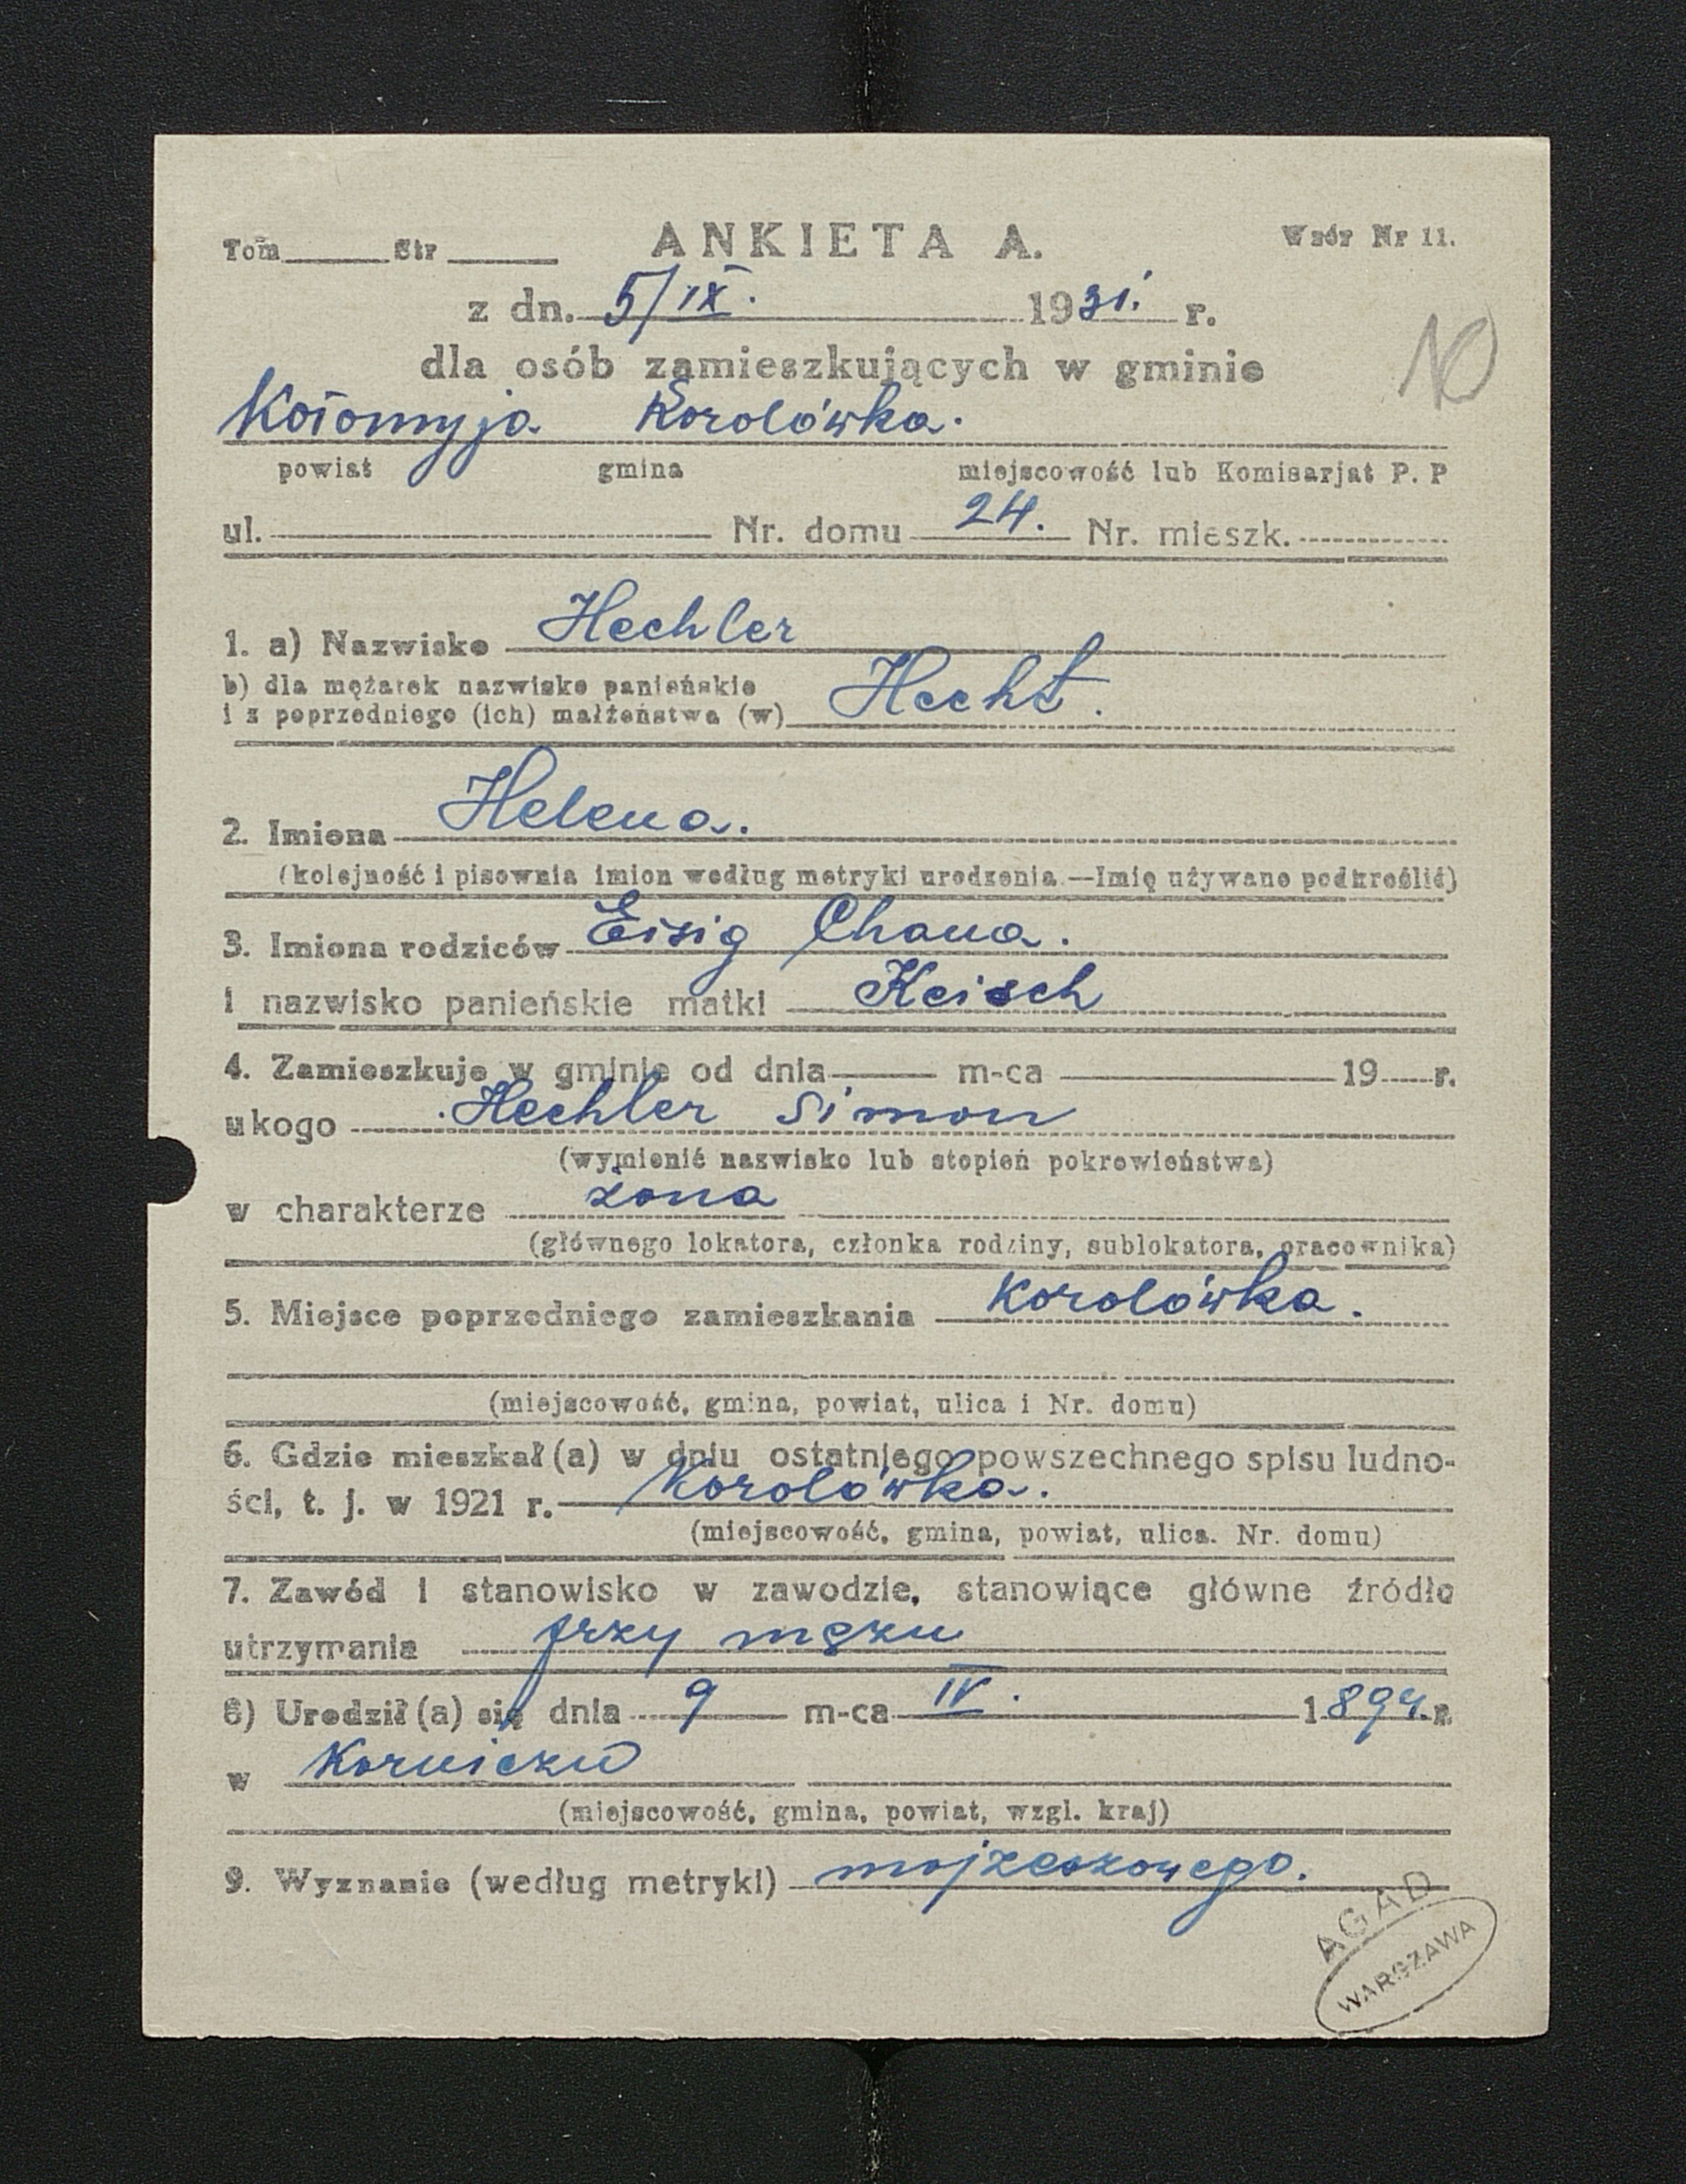 Tom Str ANKIETA A. Wzór Nr 11.
z dn. 5/IX. 1931. r.
dla osób zamieszkujących w gminie
Kołomyja Korolówka.
powiat gmina miejscowość lub Komisarjat P. P
ul. Nr. domu 24. Nr. mieszk.
1. a) Nazwisko Hechler
b) dla mężatek nazwisko panieńskie
i z poprzedniego (ich) małżeństwa (w) Hecht.
2. Imiona Helena.
(kolejność i pisownia imion według metryki urodzenia —Imię używane podkreślić)
3. Imiona rodziców Eisig Chana.
i nazwisko panieńskie matki Keisch
4. Zamieszkuje w gminie od dnia m-ca 19 r.
u kogo Hechler Simon
(wymienić nazwisko lub stopień pokrewieństwa)
w charakterze żona
(głównego lokatora, członka rodziny, sublokatora, pracownika)
5. Miejsce poprzedniego zamieszkania Korolówka.
(miejscowość, gmina, powiat, ulica i Nr. domu)
6. Gdzie mieszkał (a) w dniu ostatniego powszechnego spisu ludno-
ści, t. j. w 1921 r. Korolówka.
(miejscowość, gmina, powiat, ulica. Nr. domu)
7. Zawód i stanowisko w zawodzie, stanowiące główne źródło
utrzymania przy mężu
8) Urodził (a) się dnia 9 m-ca IV. 1894. r.
w Korniczu
(miejscowość, gmina, powiat, wzgl. kraj)
9. Wyznanie (według metryki) mojżeszowego.
AGAD
WARSZAWA